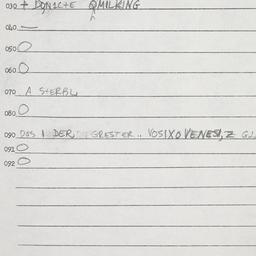 030 + DQN1C+E QMILKING
060. —
050 O
060 O
070 A S+ERBL
080 O
090 DOS I DER, GRESTER .. VOSIXO VENESI, Z
091 O
092 O